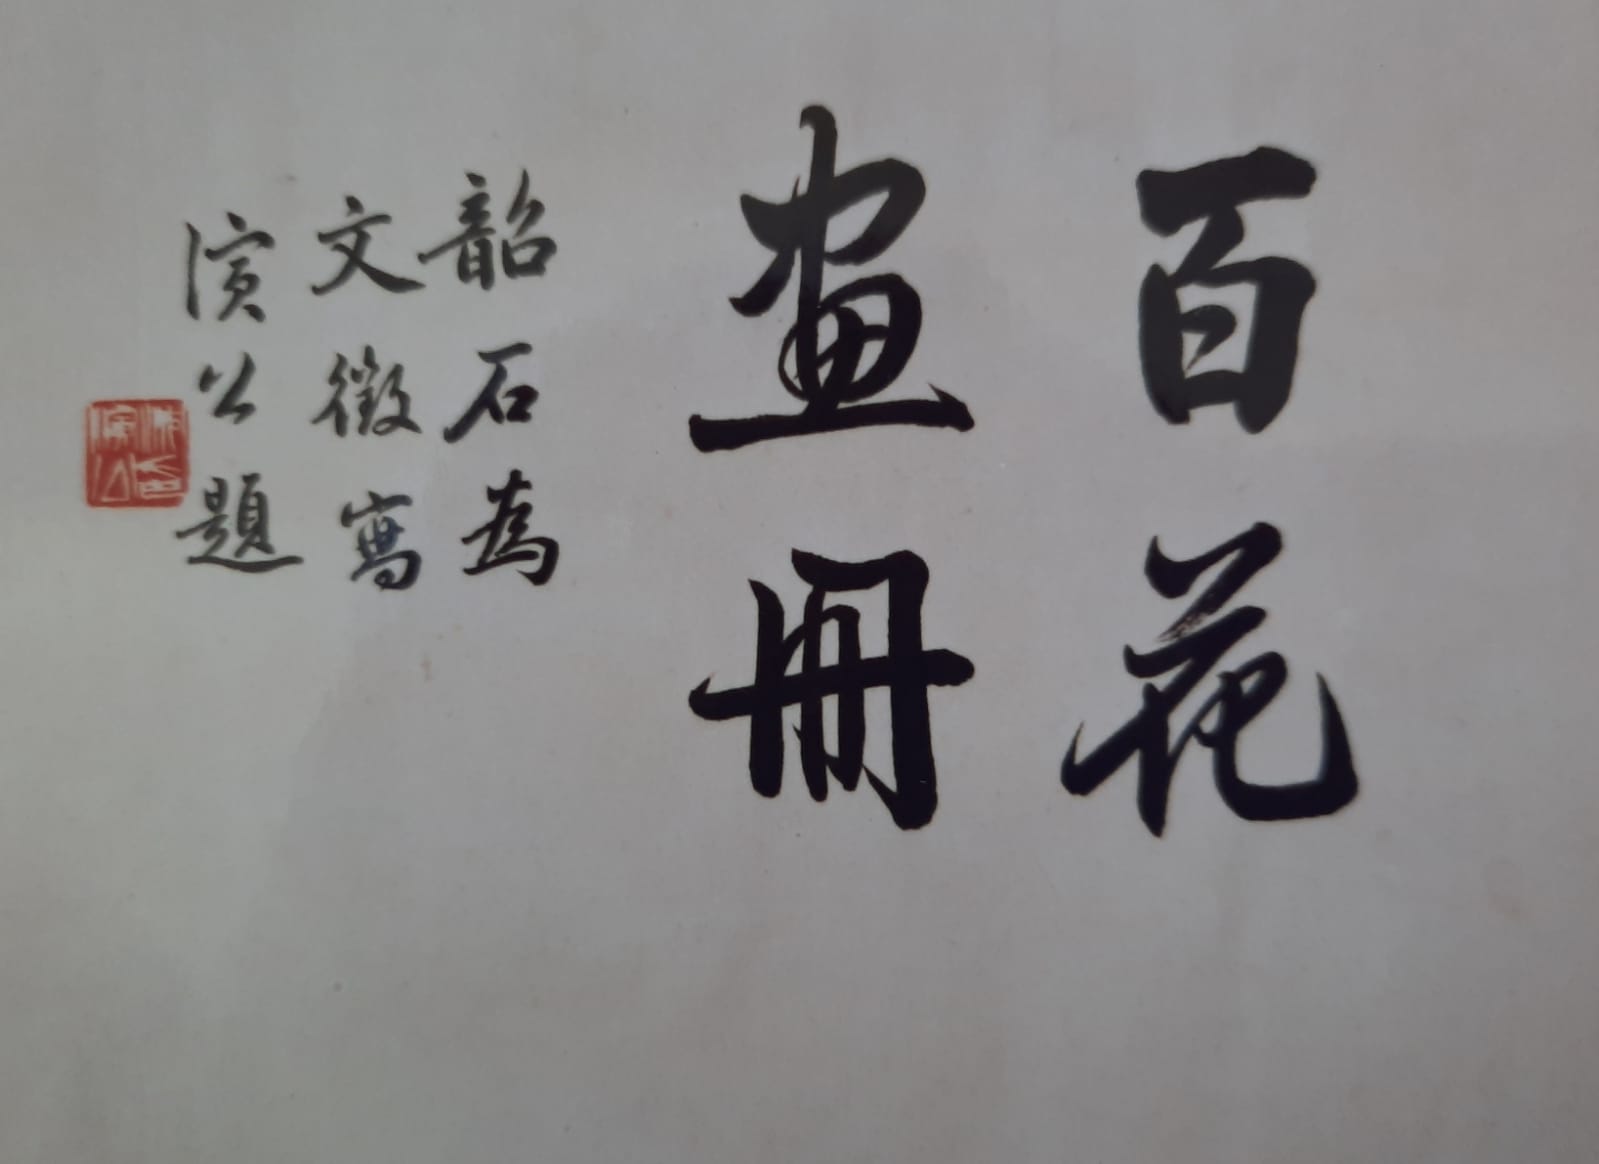 百花
畫冊
韶石為
文徵寫
演公題